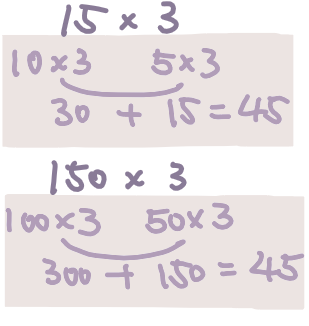 15 × 3
10×3 5×3
30 + 15 = 45
150 × 3
100×3 50×3
300 + 150 = 45